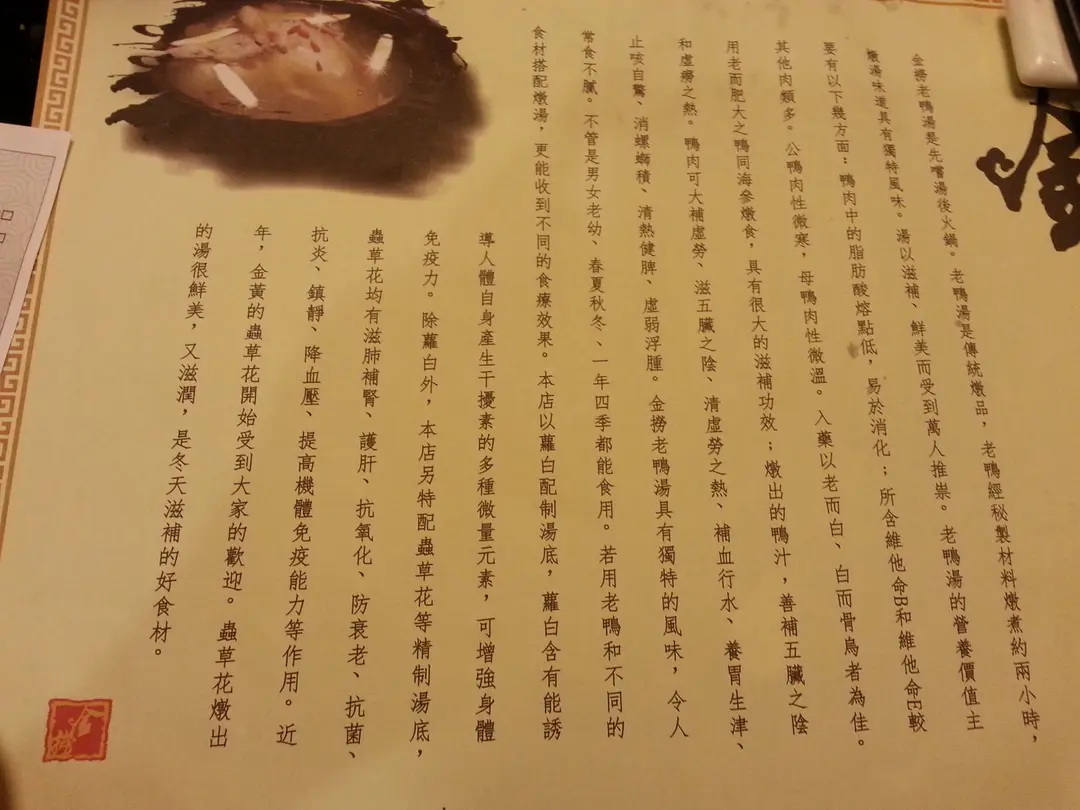 金撈老鴨湯是先嚐湯後火鍋。老鴨湯是傳統燉品，老鴨經秘製材料燉煮約兩小時，
燉湯味道具有獨特風味。湯以滋補、鮮美而受到萬人推祟。老鴨湯的營養價值主
要有以下幾方面：鴨肉中的脂肪酸熔點低，易於消化；所含維他命B和維他命E較
其他肉類多。公鴨肉性微寒，母鴨肉性微溫。入藥以老而白、白而骨烏者為佳。
用老而肥大之鴨同海參燉食，具有很大的滋補功效；燉出的鴨汁，善補五臟之陰
和虛癆之熱。鴨肉可大補虛勞、滋五臟之陰、清虛勞之熱、補血行水、養胃生津、
止咳自驚、消螺螄積、清熱健脾、虛弱浮腫。金撈老鴨湯具有獨特的風味，令人
常食不膩。不管是男女老幼、春夏秋冬、一年四季都能食用。若用老鴨和不同的
食材搭配燉湯，更能收到不同的食療效果。本店以蘿白配制湯底，蘿白含有能誘
導人體自身產生干擾素的多種微量元素，可增強身體
免疫力。除蘿白外，本店另特配蟲草花等精制湯底，
蟲草花均有滋肺補腎、護肝、抗氧化、防衰老、抗菌、
抗炎、鎮靜、降血壓、提高機體免疫能力等作用。近
年，金黃的蟲草花開始受到大家的歡迎。蟲草花燉出
的湯很鮮美，又滋潤，是冬天滋補的好食材。
金撈